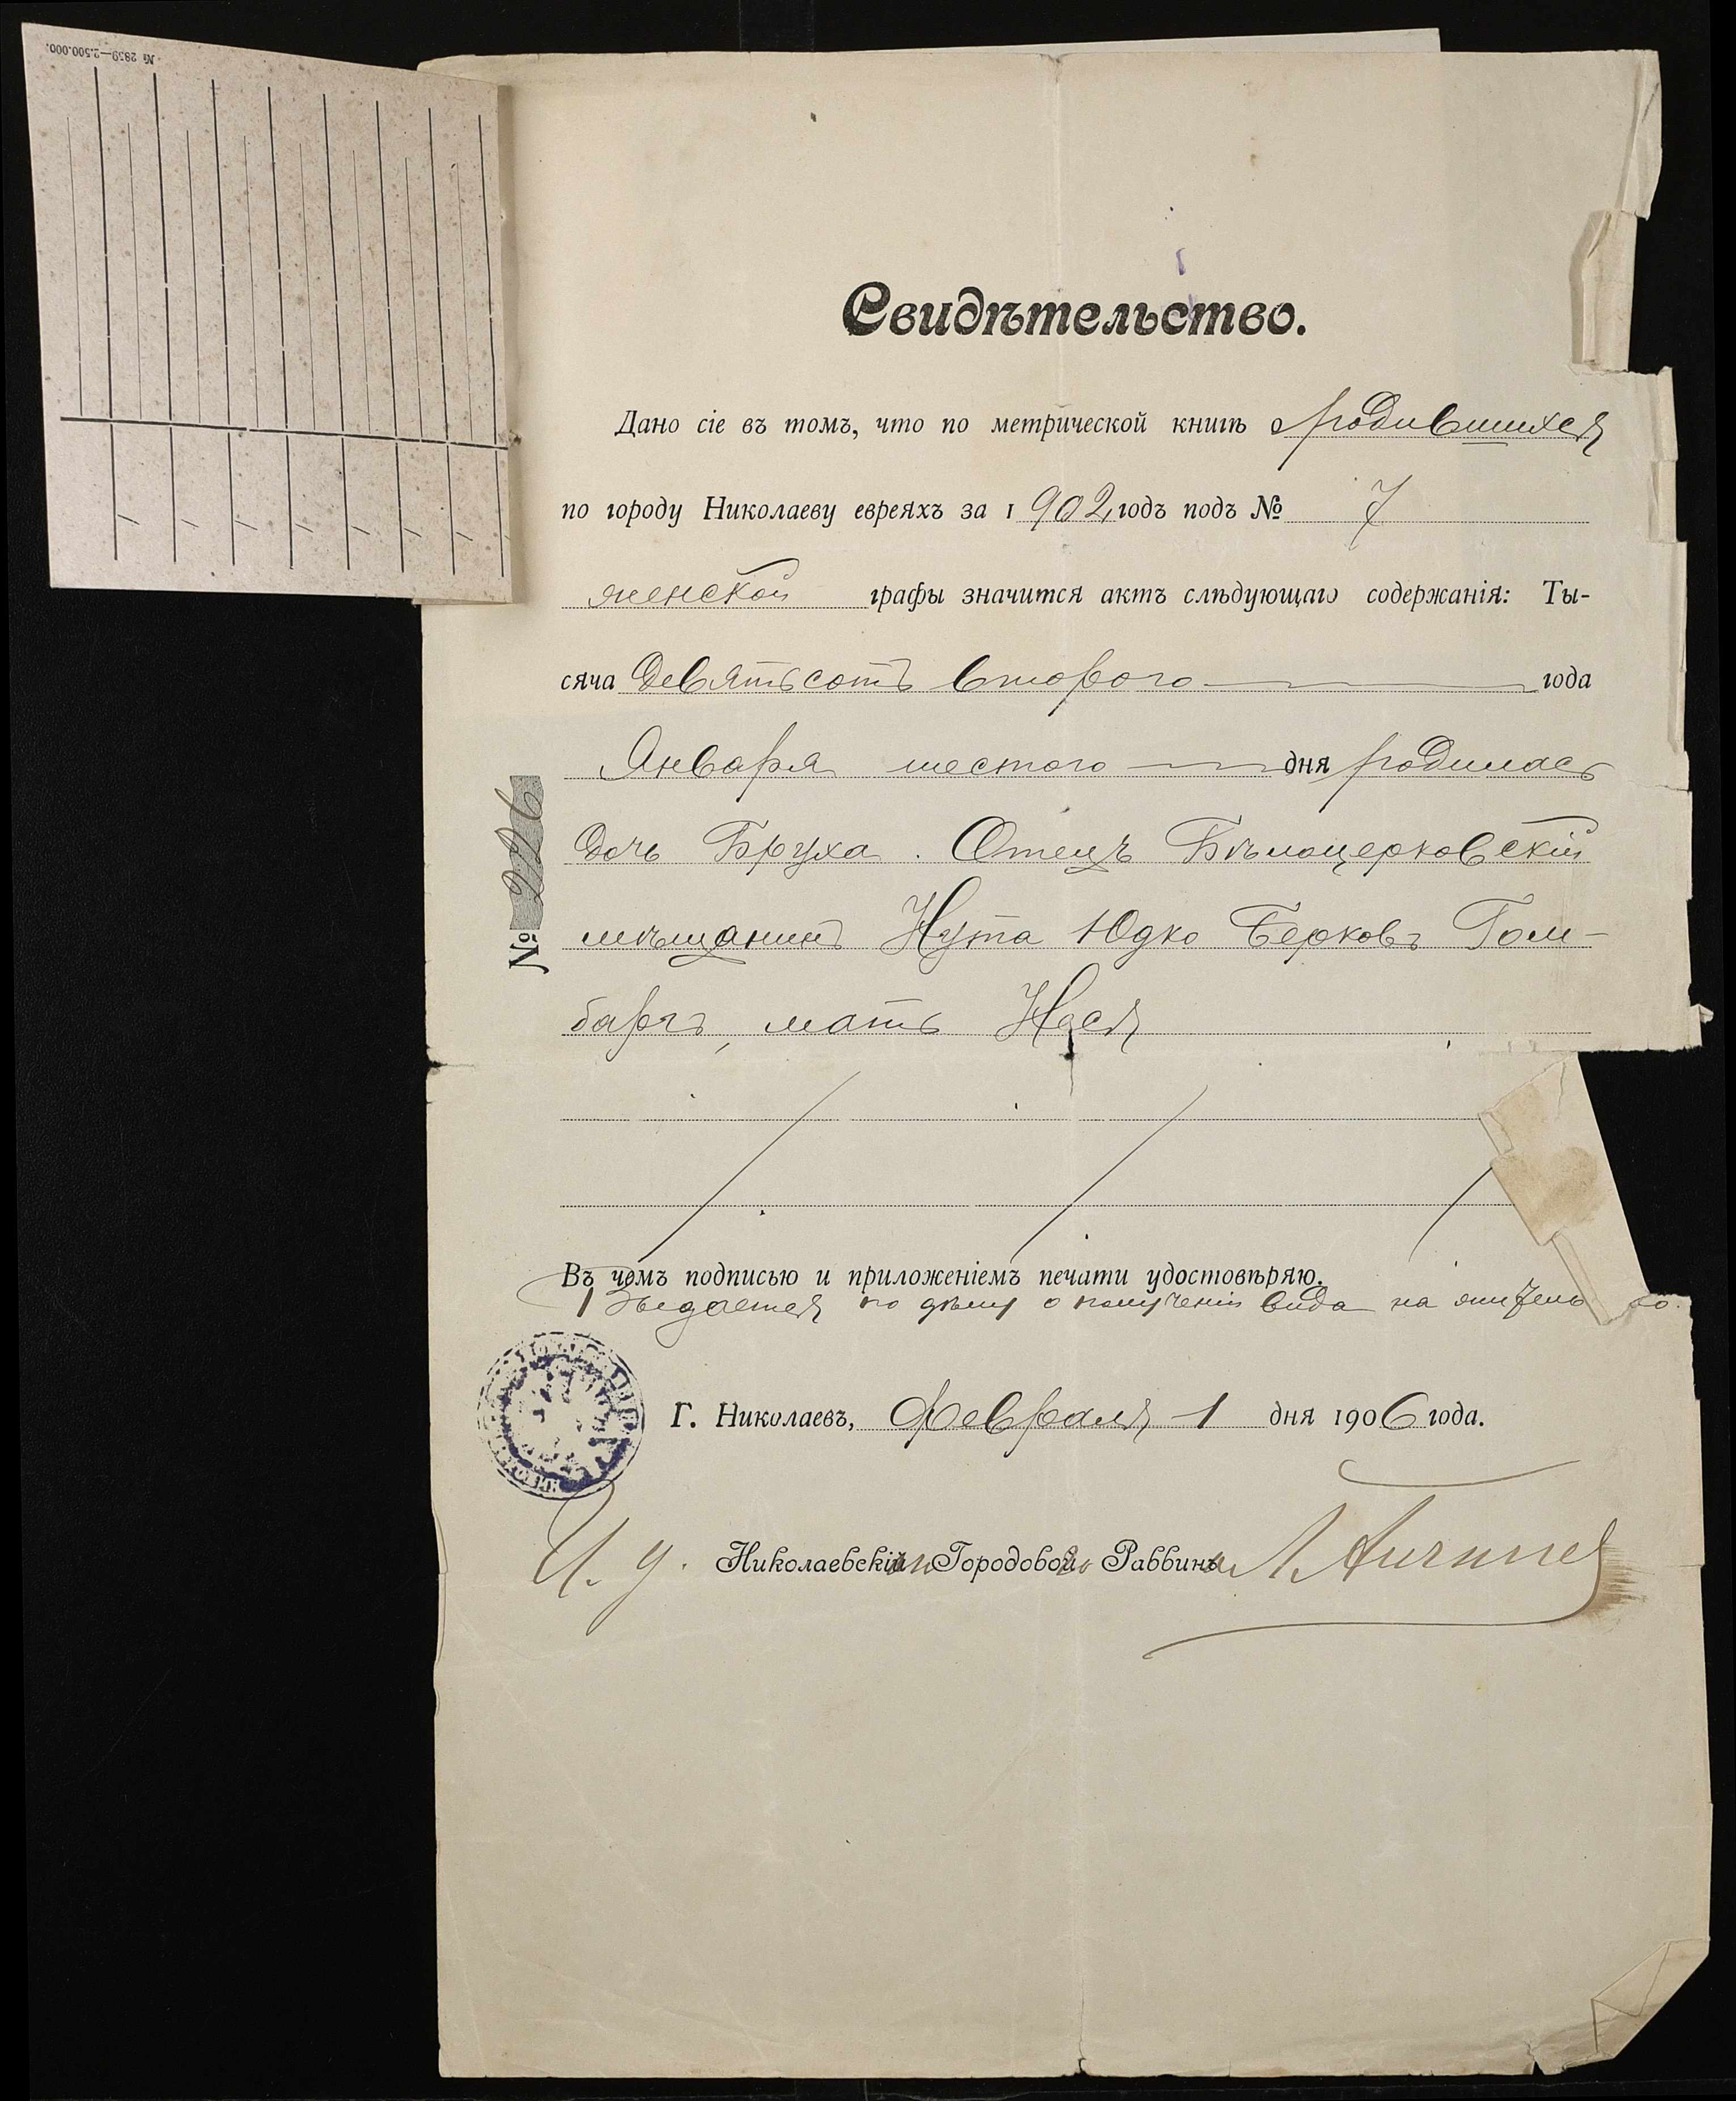 № 2859—2.500.000.
Свидѣтельство.
Дано сіе въ томъ, что по метрической книгѣ о родившихся
по городу Николаеву евреяхъ за 1902 годъ подъ № 7
женской графы значится актъ слѣдующаго содержанія: Ты-
сяча девятьсотъ второго года
Января шестого дня родилась
дочь Бруха. Отецъ Бѣлоцерковскій
мѣщанинъ Нута Юдко Берковъ Гом-
баргъ, мать Нася
№ 226
Въ чемъ подписью и приложеніемъ печати удостовѣряю.
Выдается по дѣлу о полученіи вида на жительство.
Г. Николаевъ, Февраля 1 дня 1906 года.
И. д. Николаевскаго Городового Раввина